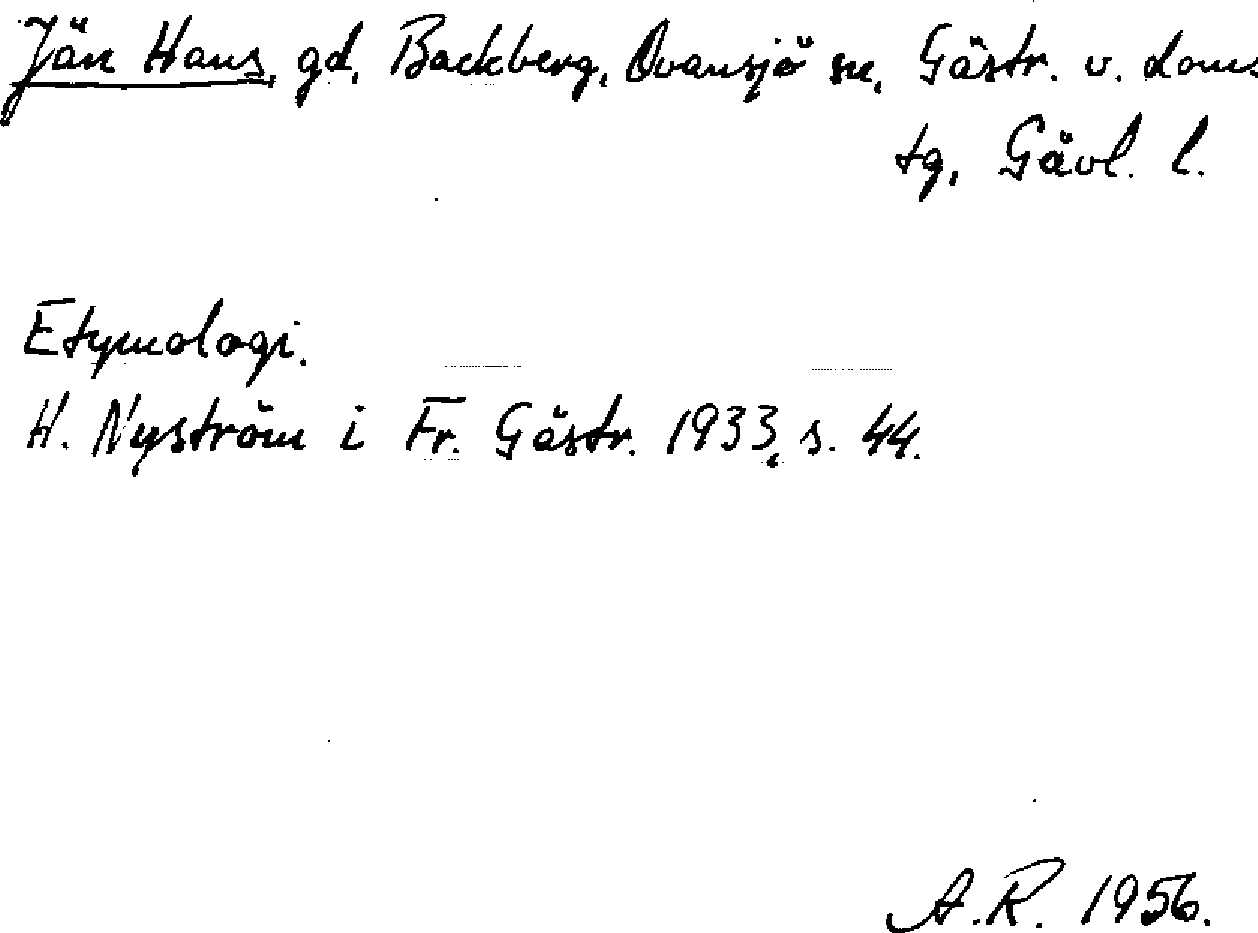 Jän Hans, gd, Backberg, Ovansjö sn, Gästr. v. doms
tg, Gävl. l.
Etymologi.
H. Nyström i Fr. Gästr. 1933, s. 44.
A.R. 1956.